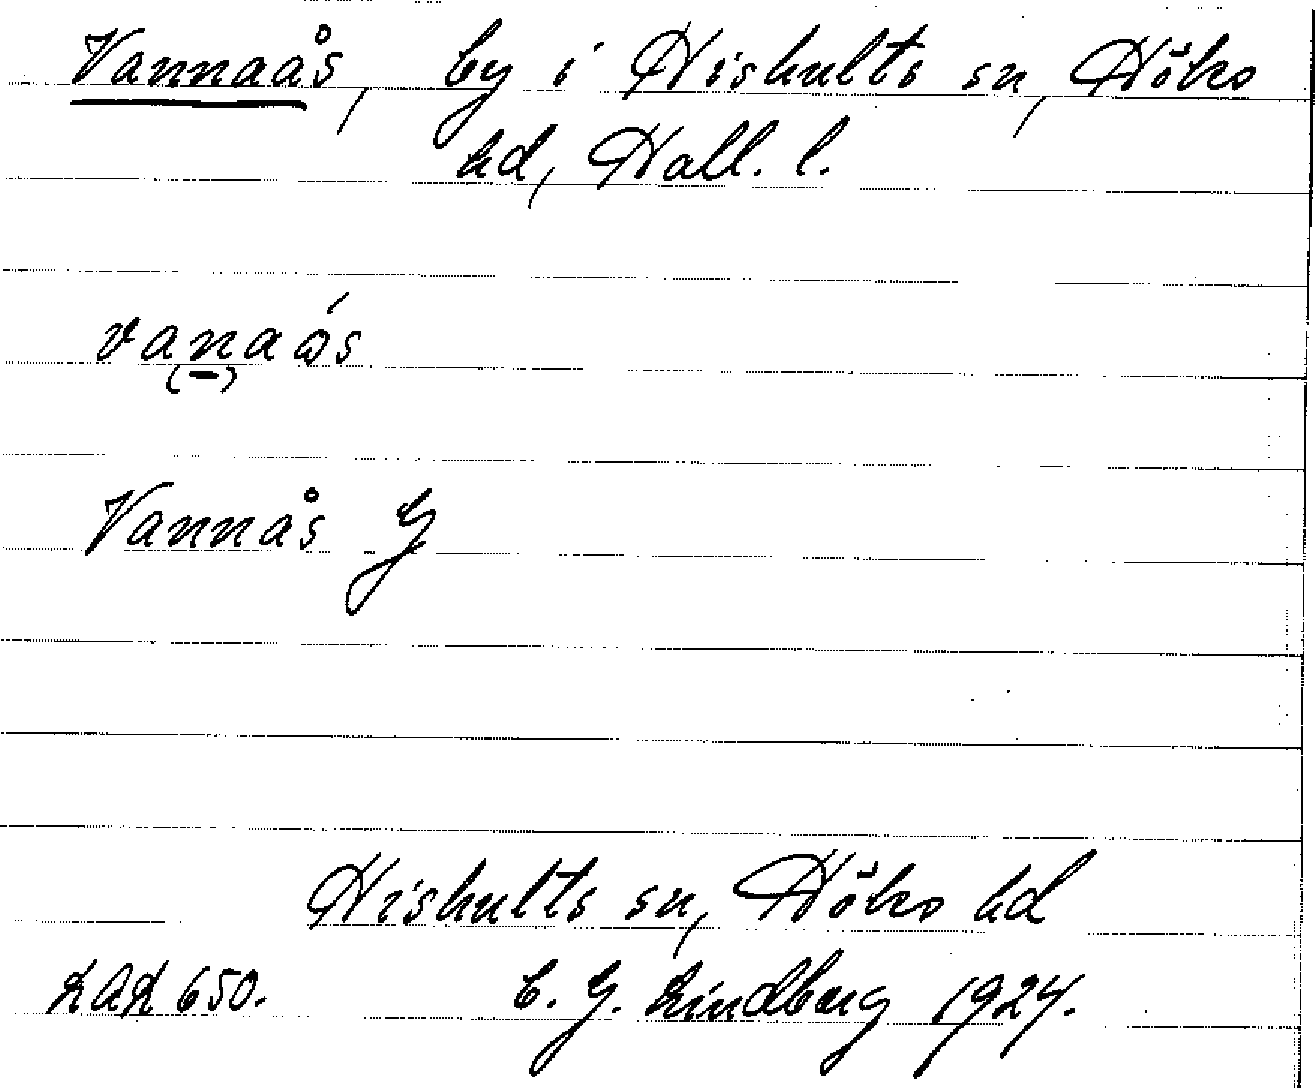 Vannaås, by i Hishults sn, Höks
hd, Hall. l.
vanaǻs
(-)
Vannås G
Hishults sn, Höks hd
LAL 650. C. G. Lindberg 1924.